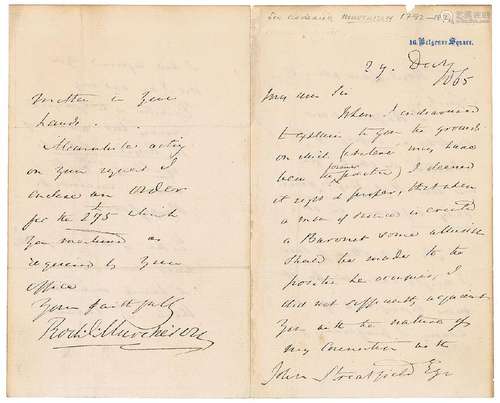 Sir Roderick MURCHISON 1792-1871
16, Belgrave Square.
29 Decr
1865
My dear Sir
When I endeavoured
to explain to you the grounds
on which (whatever may have
been the former practice) I deemed
it right & proper, that when
a man of Science is created
a Baronet some allusion
should be made to the
position he occupies, I
did not sufficiently acquaint
you with the nature of
my connection with
John Streatfield Esqr
matter in your
hands.
Meanwhile acting
on your request I
enclose an order
for the £95 which
you mentioned as
required by your
office
Yours faithfully
Rod. I. Murchison